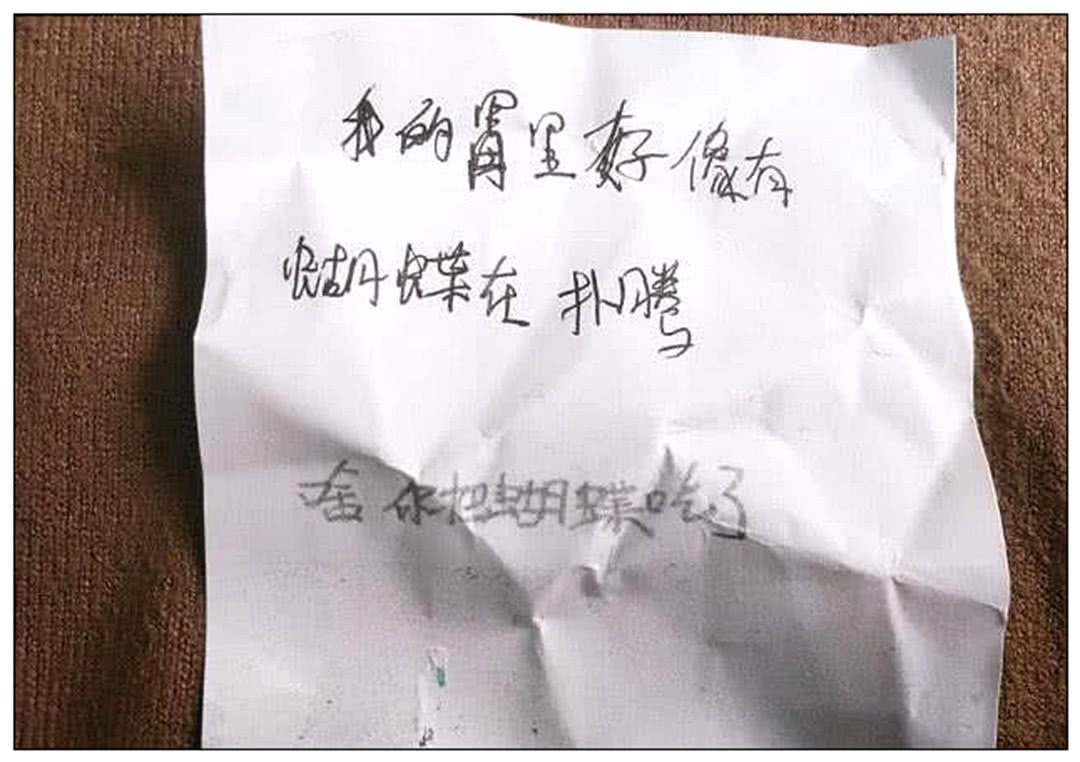 我的胃里好像有
蝴蝶在扑腾
啥你把蝴蝶吃了